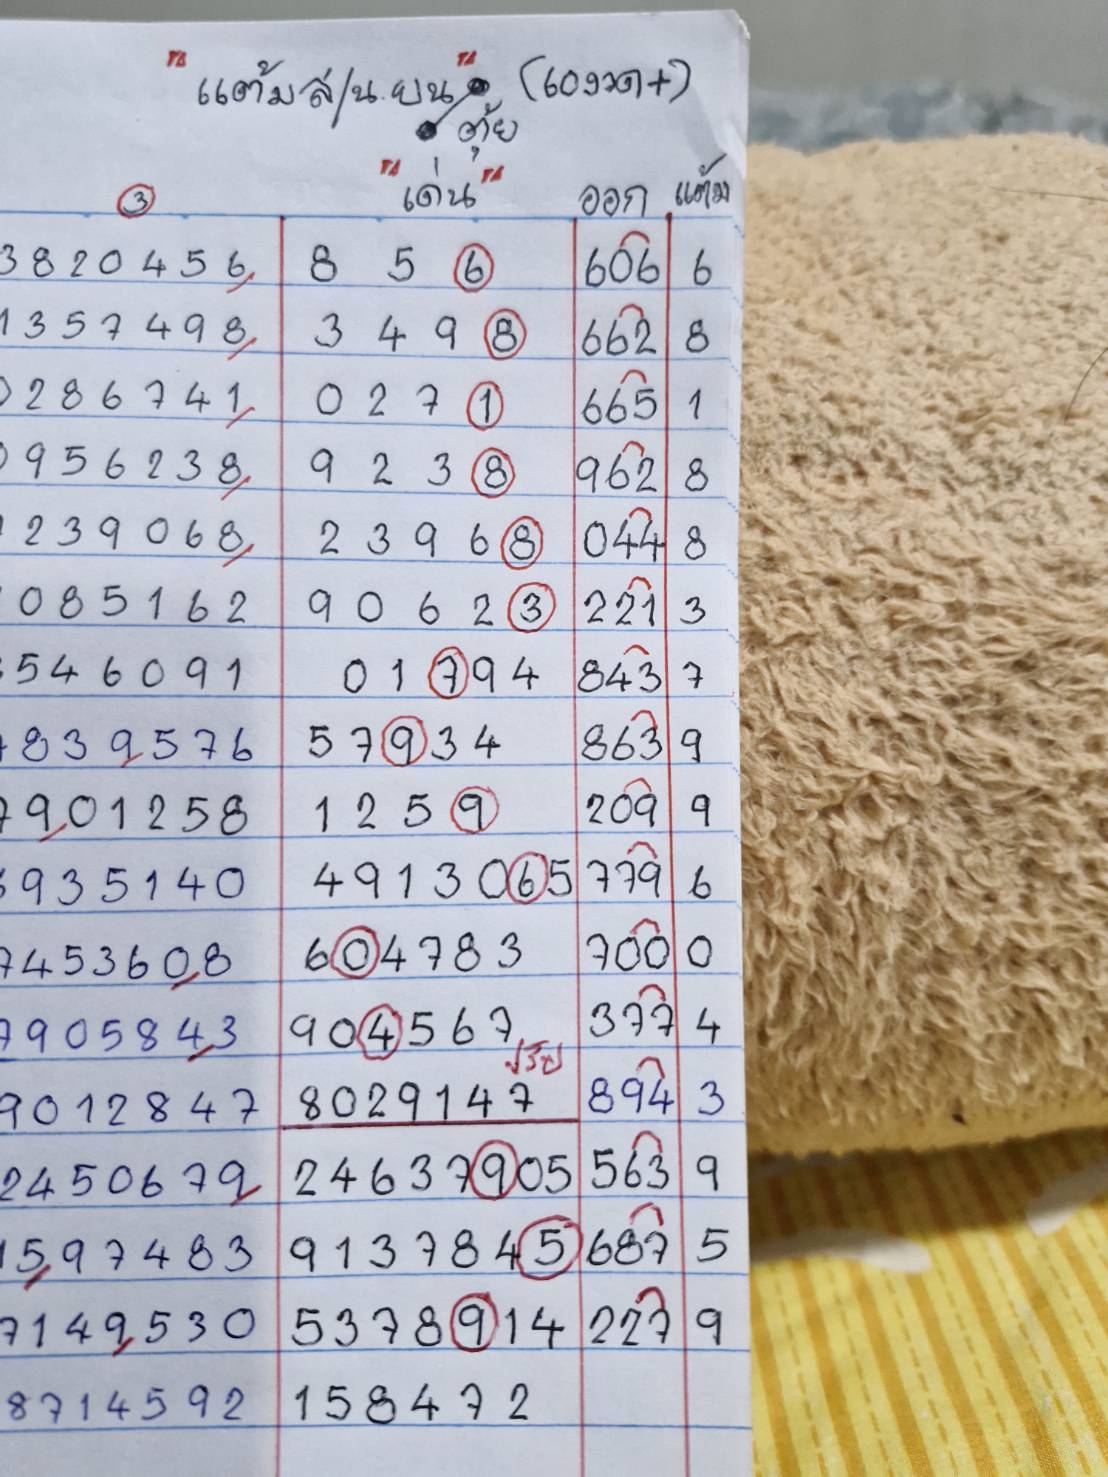 "แต้มล่/น.บน" (เอางวด+)
ตุ้ย
③ "เด่น" ออก แต้ม
3820456 8 5 6 606 6
1357498 3 4 9 8 662 8
0286741 0 2 7 1 665 1
0956238 9 2 3 8 962 8
1239068 2 3 9 6 8 044 8
085162 9 0 6 2 3 221 3
546091 0 1 7 9 4 843 7
839576 5 7 9 3 4 863 9
7901258 1 2 5 9 209 9
935140 4 9 1 3 0 6 5 779 6
7453608 6 0 4 7 8 3 700 0
7905843 9 0 4 5 6 7 377 4
9012847 8029147 894 3
2450679 24637905 563 9
1597483 9137845 687 5
7149530 5378914 227 9
8714592 158472